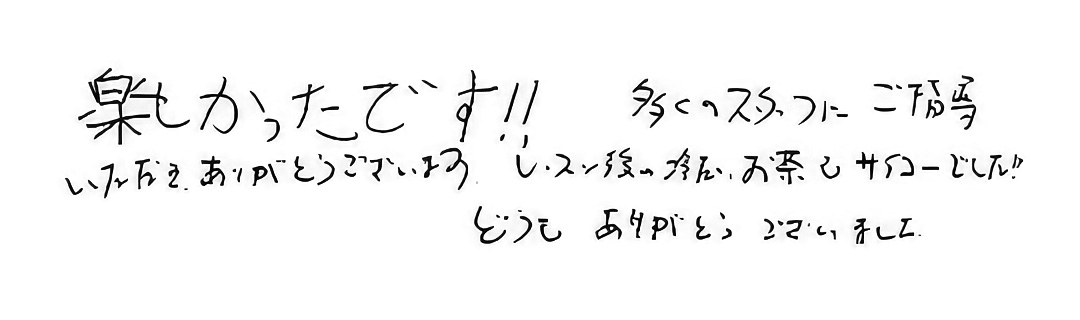 楽しかったです!! 多くのスタッフに ご指導
いただき、ありがとうございます。 レッスン後の冷たいお茶もサイコーでした!!
どうも ありがとう ございました。